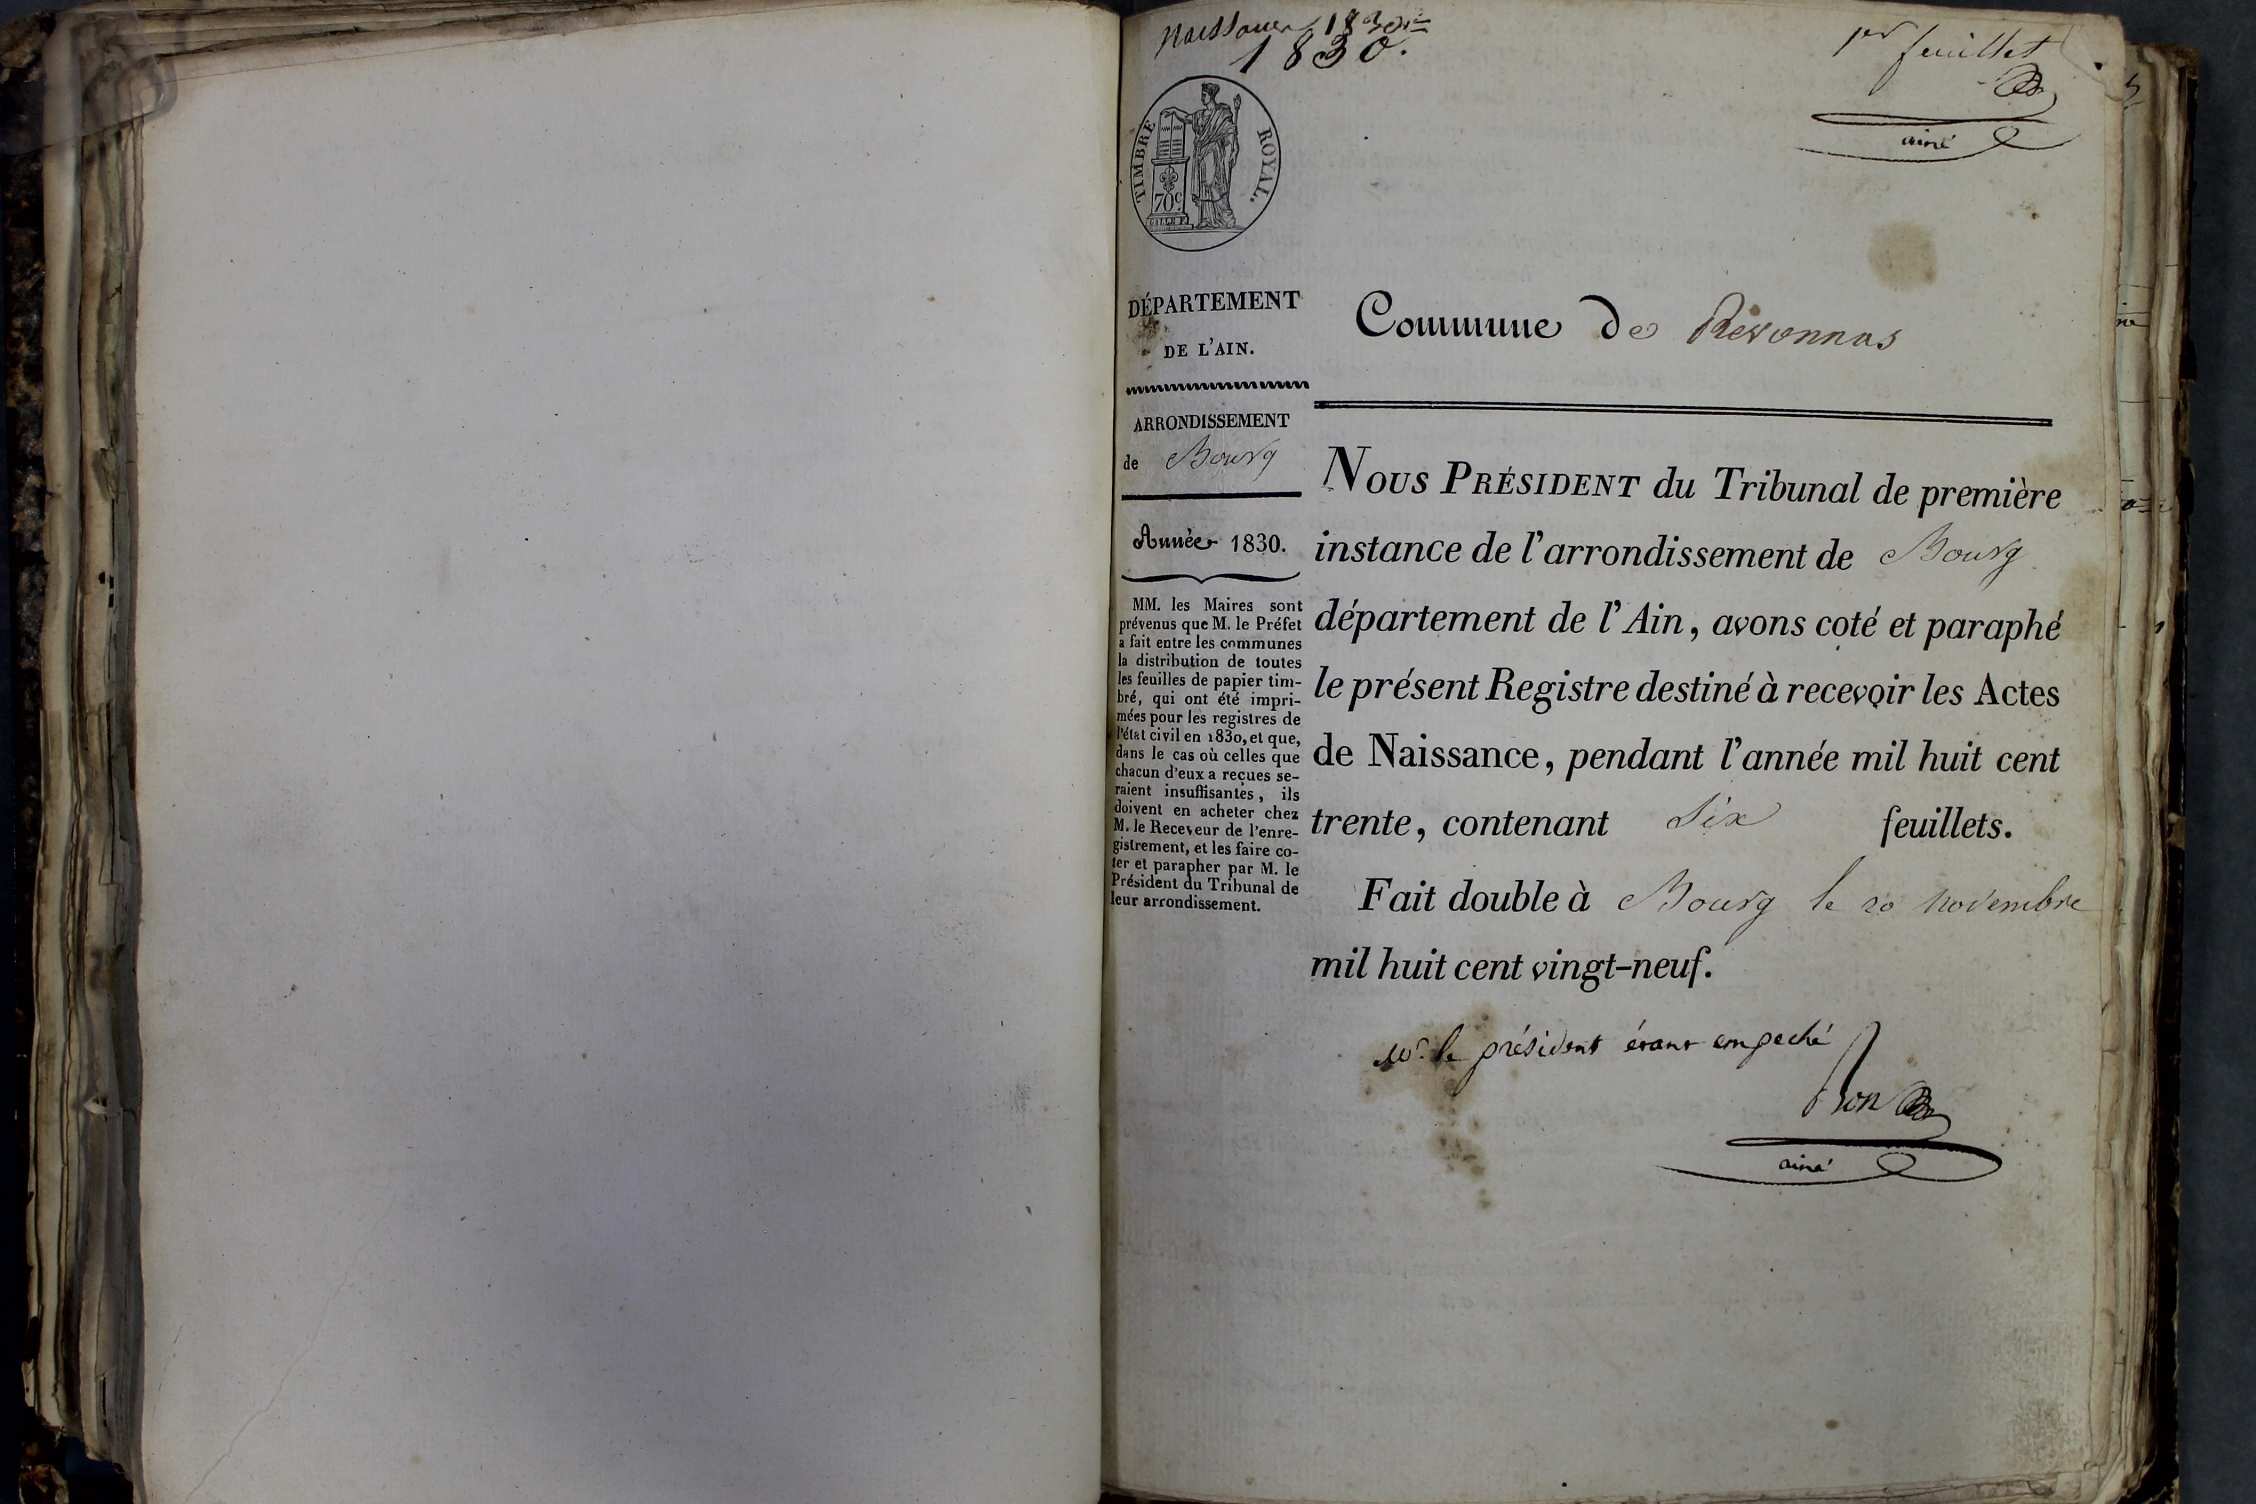 1830.
1er feuillet
ainé
TIMBRE ROYAL.
70c.
DÉPARTEMENT
DE L'AIN.
ARRONDISSEMENT
de Bourg
Année 1830.
MM. les Maires sont
prévenus que M. le Préfet
a fait entre les communes
la distribution de toutes
les feuilles de papier tim-
bré, qui ont été impri-
mées pour les registres de
l'état civil en 1830, et que,
dans le cas où celles que
chacun d'eux a reçues se-
raient insuffisantes, ils
doivent en acheter chez
M. le Receveur de l'enre-
gistrement, et les faire co-
ter et parapher par M. le
Président du Tribunal de
leur arrondissement.
Commune de Revonnas
NOUS PRÉSIDENT du Tribunal de première
instance de l'arrondissement de Bourg
département de l'Ain, avons coté et paraphé
le présent Registre destiné à recevoir les Actes
de Naissance, pendant l'année mil huit cent
trente, contenant Six feuillets.
Fait double à Bourg le 20 novembre
mil huit cent vingt-neuf.
Mr. le président étant empeché
ainé